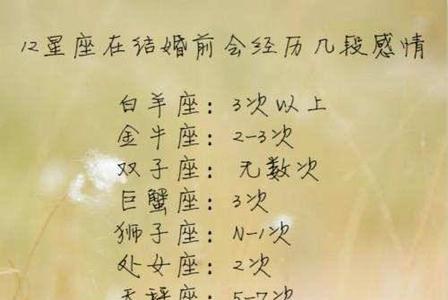 12星座在结婚前会经历几段感情
白羊座：3次以上
金牛座：2-3次
双子座：无数次
巨蟹座：3次
狮子座：N-1次
处女座：2次
天秤座：5-7次